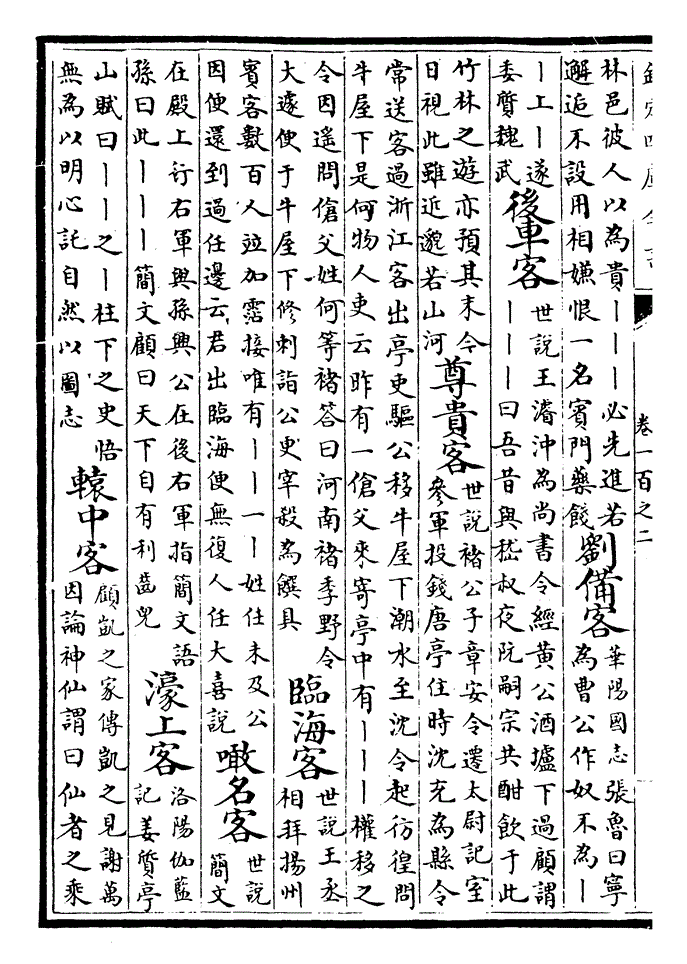 欽定四庫全書
卷一百之二
林邑彼人以為貴丨丨丨必先進若
解逅不設用相嫌恨一名賓門藥餞
劉備客
華陽國志張魯曰寧
為曹公作奴不為丨
丨上丨遂
委質魏武
後車客
世說王濬沖為尚書令經黄公酒壚下過顧謂
丨丨丨曰吾昔與嵇叔夜阮嗣宗共酣飲于此
竹林之遊亦預其末今
日視此雖近邈若山河
尊貴客
世說褚公子章安令遷太尉記室
參軍投錢唐亭住時沈充為縣令
常送客過浙江客出亭吏驅公移牛屋下潮水至沈令起彷徨問
牛屋下是何物人吏云昨有一傖父來寄亭中有丨丨丨權移之
令因遥問傖父姓何等褚答曰河南褚季野令
大遽便于牛屋下修刺詣公更宰殺為饌具
臨海客
世說王丞
相拜揚州
賓客數百人竝加霑接唯有丨丨一丨姓任未及公
因便還到過任邊云君出臨海便無復人任大喜說
噉名客
世說
簡文
在殿上行右軍與孫興公在後右軍指簡文語
孫曰此丨丨丨簡文顧曰天下自有利齒兒
濠上客
洛陽伽藍
記姜質亭
山賦曰丨丨之丨柱下之史悟
無為以明心託自然以圖志
轅中客
顧凱之家傳凱之見謝萬
因論神仙謂曰仙者之乘